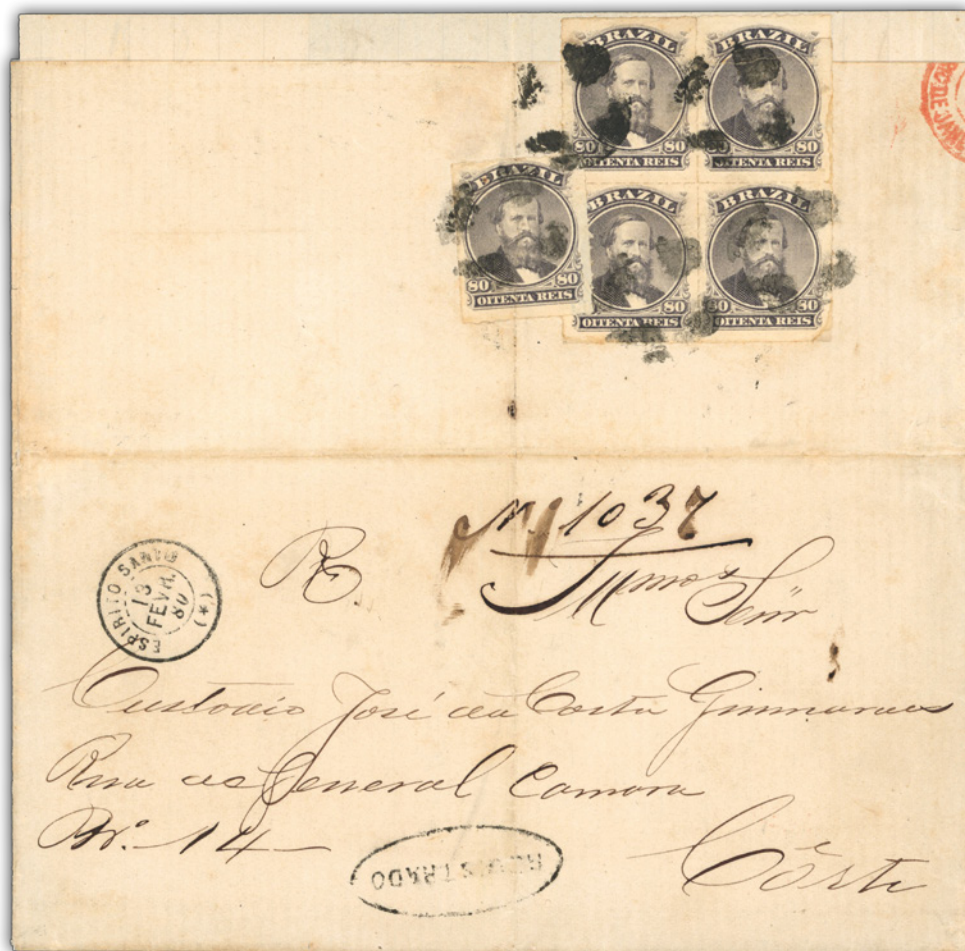 BRAZIL
80 80
OITENTA REIS
BRAZIL
80 80
OITENTA REIS
BRAZIL
80 80
OITENTA REIS
BRAZIL
80 80
OITENTA REIS
BRAZIL
80 80
OITENTA REIS
DE JANE
N. 1037
R
Illmos Senr
ESPIRITO SANTO
13
FEVR.
80
(*)
Custodio José da Costa Guimaraes
Rua do General Camara
No. 14
Côrte
REGISTRADO